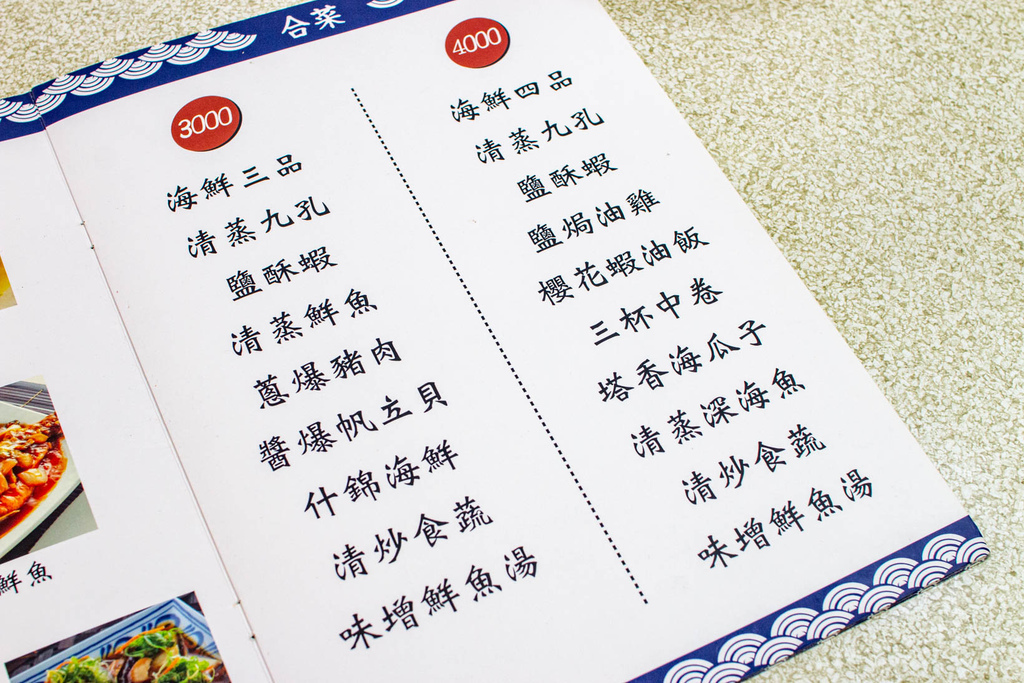 合菜
3000
海鮮三品
清蒸九孔
鹽酥蝦
清蒸鮮魚
蔥爆豬肉
醬爆帆立貝
什錦海鮮
清炒食蔬
味增鮮魚湯
4000
海鮮四品
清蒸九孔
鹽酥蝦
鹽焗油雞
櫻花蝦油飯
三杯中卷
塔香海瓜子
清蒸深海魚
清炒食蔬
味增鮮魚湯
鮮魚